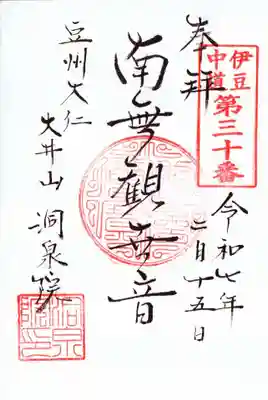 伊豆
中道
第三十番
奉拝
令和七年
二月十五日
南無観世音
豆州大仁
大井山 洞泉院